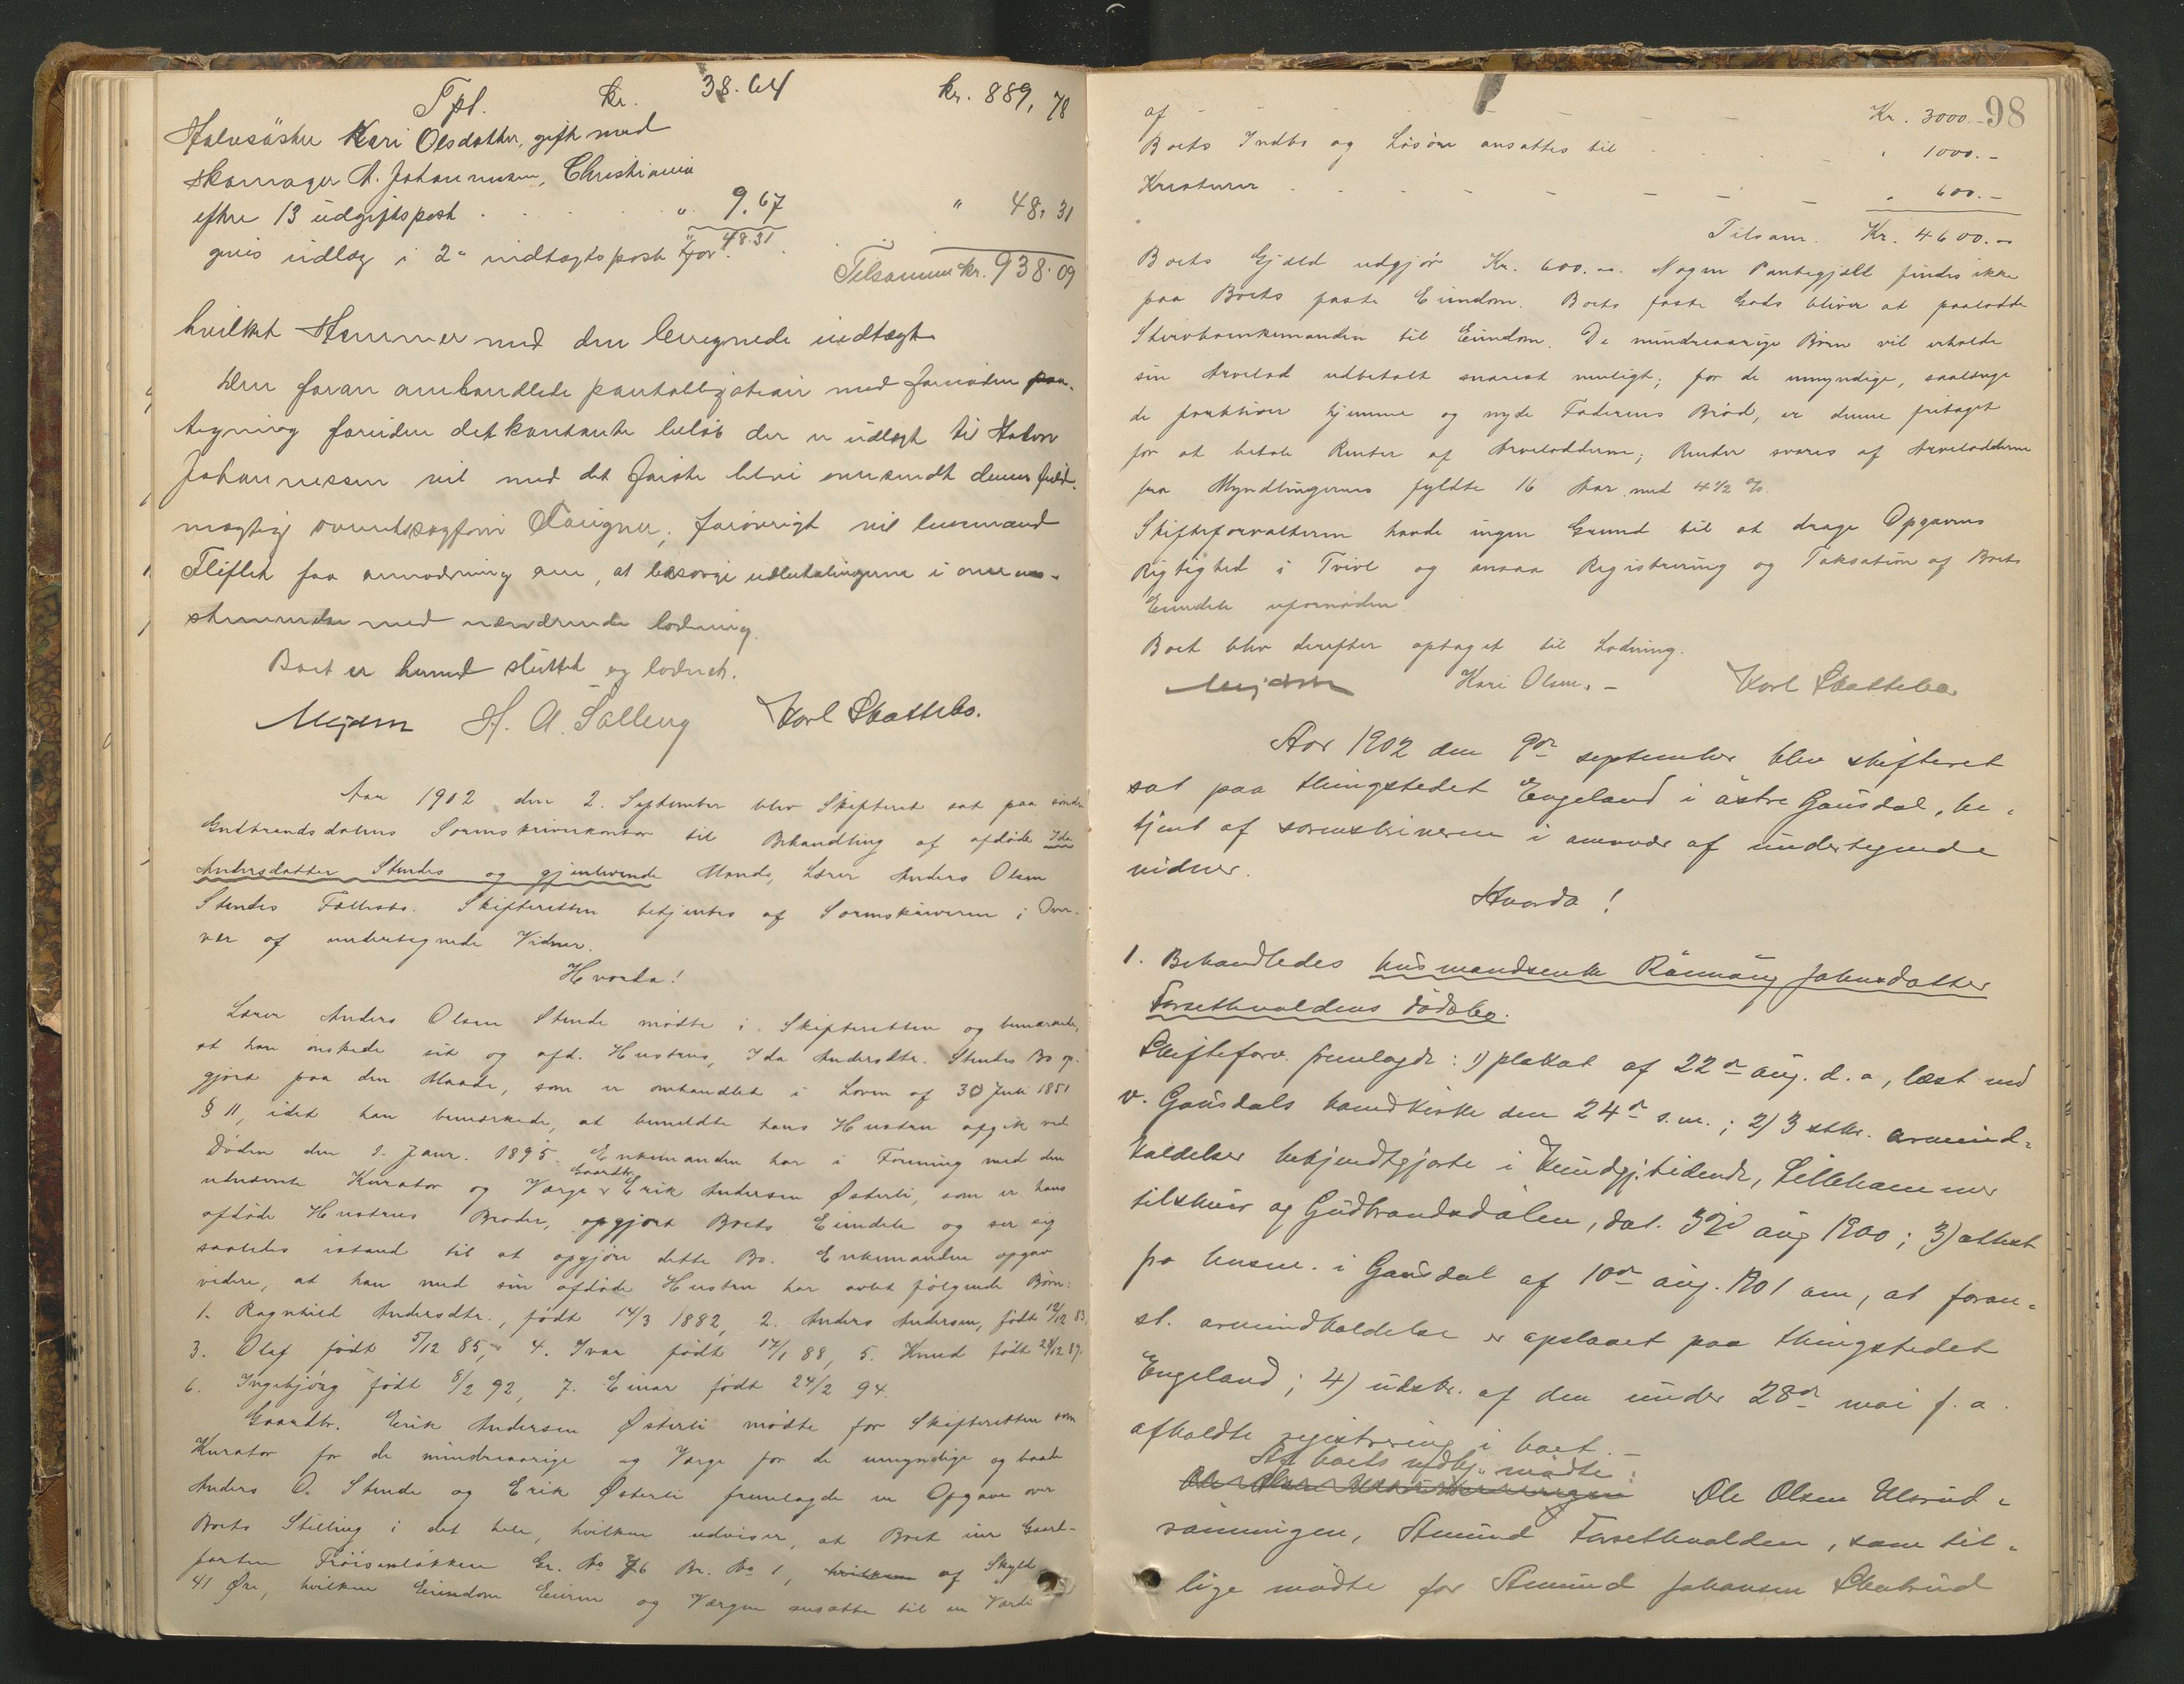 Tpl. kr. 38.64 kr. 889,78
Halvsöster Kari Olsdatter, gift med
skomager A. Johannessen, Christiania
efter 13 udgiftspost . . . " 9.67 " 48,31
gives udlæg i 2den indtægtspost for. " 48.31
Tilsammen kr. 938.09
hvilket stemmer med den beregnede indtægt
Den foran omhandlede pantobligation med fornøden paa-
tegning foruden det kontante beløb der er udlagt til Halvor
Johannessen vil med det første blive oversendt dennes fuld-
mægtig overretssagfører ; forøvrigt vil lensmand
Fliflet faa anmodning om, at besørge udbetalingerne i overens-
stemmelse med nærværende lodning.
Boet er hermed sluttet og loddet.
Mejdem H. A. Salleng Karl Skattebo.
Aar 1902 den 2. September blev Skifteret sat paa søndre
Gudbrandsdalens Sorenskriverkontor til Behandling af afdøde Ida
Andersdatter Stendes og gjenlevende Mands, Lærer Anders Olsen
Stendes Fællesbo. Skifteretten betjentes af Sorenskriveren i Over-
vær af undertegnede Vidner.
Hvorda!
Lærer Anders Olsen Stende mødte i Skifteretten og bemærkede,
at han ønskede sit og afd. Hustrus, Ida Andersdtr. Stendes Bo op-
gjort paa den Maade, som er omhandlet i Loven af 30 Juli 1851
§ 11, idet han bemærkede, at bemeldte hans Hustru afgik ved
Døden den 9. Janr. 1895. Enkemanden har i Forening med den
udnævnte Kurator og Værge Gaardbr. Erik Andersen Østerli, som er hans
afdøde Hustrus Broder, opgjort Boets Eiendele og ser sig
saaledes istand til at opgjøre dette Bo. Enkemanden opgav
videre, at han med sin afdøde Hustru har avlet følgende Børn:
1. Ragnhild Andersdtr., født 14/3 1882, 2. Anders Andersen, født 12/12 83,
3. Olaf født 5/12 85, 4. Ivar født 17/1 88, 5. Knud født 28/12 89.
6. Ingebjørg født 8/2 92, 7. Einar født 24/2 94.
Gaardbr. Erik Andersen Østerli mødte for Skifteretten som
Kurator for de mindreaarige og Værge for de umyndige og baade
Anders O. Stende og Erik Østerli fremlagde en Opgave over
Boets Stilling i det hele, hvilken udviser, at Boet eier Gaard-
parten Frøisenløkken Gr. No 76 Br. No 1, hvilken af Skyld
41 Øre, hvilken Eiendom Eieren og Værgen ansatte til en Værdi
98
af - - - - - Kr. 3000.-
Boets Indbo og Løsøre ansattes til . . . " 1000.-
Kreaturer - - - - - " 600.-
Tilsam. Kr. 4600.-
Boets Gjæld udgjør Kr. 600.-. Nogen Pantegjæld findes ikke
paa Boets faste Eiendom. Boets faste Gods bliver at paalodde
Stervboenkemanden til Eiendom. De mindreaarige Børn vil erholde
sin Arvelod udbetalt snarest muligt; for de umyndige, saalænge
de forbliver hjemme og nyde Faderens Brød, er denne fritaget
for at betale Renter af Arvelodderne; Renter svares af Arvelodderne
fra Myndlingernes fyldte 16 Aar med 4 1/2 %.
Skifteforvalteren havde ingen Grund til at drage Opgavens
Rigtighed i Tvivl og ansaa Registrering og Taksation af Boets
Eiendele ufornøden.
Boet blev derefter optaget til Lodning.
Mejdem Kari Olsen. - Karl Skattebo
Aar 1902 den 9de september blev skifteret
sat paa thingstedet Engeland i østre Gausdal, be-
tjent af sorenskriveren i overvær af undertegnede
vidner.
Hvorda!
1. Behandledes husmandsenke Rønnaug Johnsdatter
Forsethvoldens dødsbo.
Skifteforv. fremlagde: 1) plakat af 22de aug. d.a, læst ved
v. Gausdals hovedkirke den 24de s.m.; 2) 3 stkr. arveind-
kaldelser bekjendtgjorte i Kundgj.tidende, Lillehammer
tilskuer og Gudbrandsdølen, dat. 3die aug 1900; 3) attest
fra lensm. i Gausdal af 10de aug. 1901 om, at foran-
st. arveindkaldelse er opslaaet paa thingstedet
Engeland; 4) udskr. af den under 28de mai f.a.
afholdte registrering i boet. -
Af boets vedkj. mødte:
Ole Olsen Ulsrud-
rønningen, Amund Forsethvolden, som til-
lige mødte for Amund Johansen Skabrud